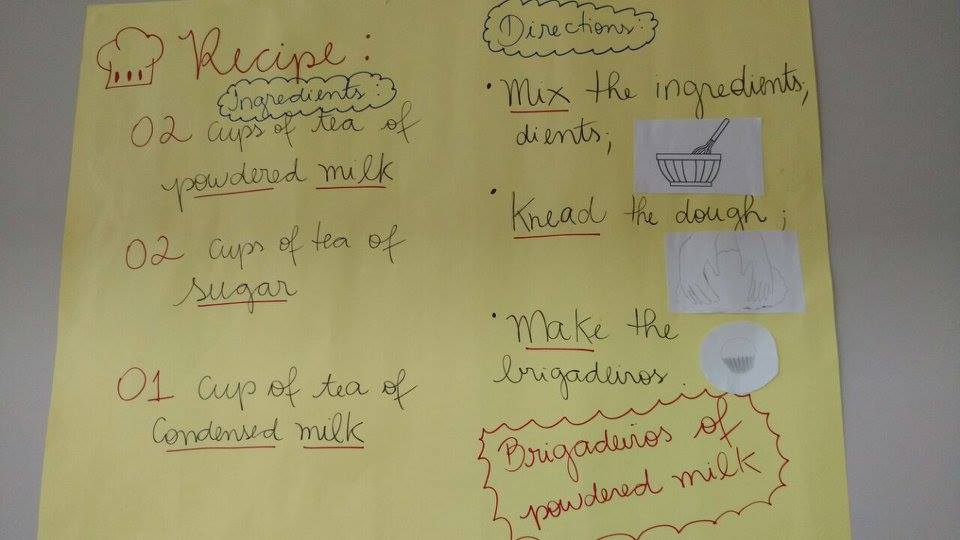 Recipe:
Ingredients:
02 cups of tea of
powdered milk
02 cups of tea of
sugar
01 cup of tea of
condensed milk
Directions:
• Mix the ingredients;
dients;
• Knead the dough;
• Make the
brigadeiros.
Brigadeiros of
powdered milk